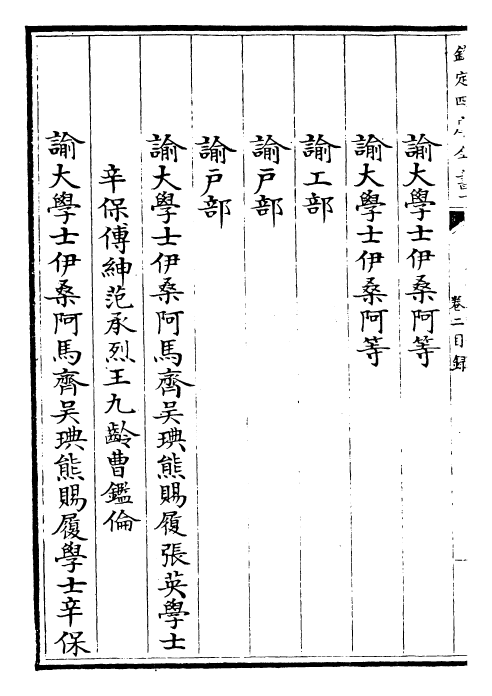 欽定四庫全書
卷二目錄
諭大學士伊桑阿等
諭大學士伊桑阿等
諭工部
諭戶部
諭戶部
諭大學士伊桑阿馬齊吴琠熊賜履張英學士
辛保傅紳范承烈王九齡曹鑑倫
諭大學士伊桑阿馬齊吴琠熊賜履學士辛保